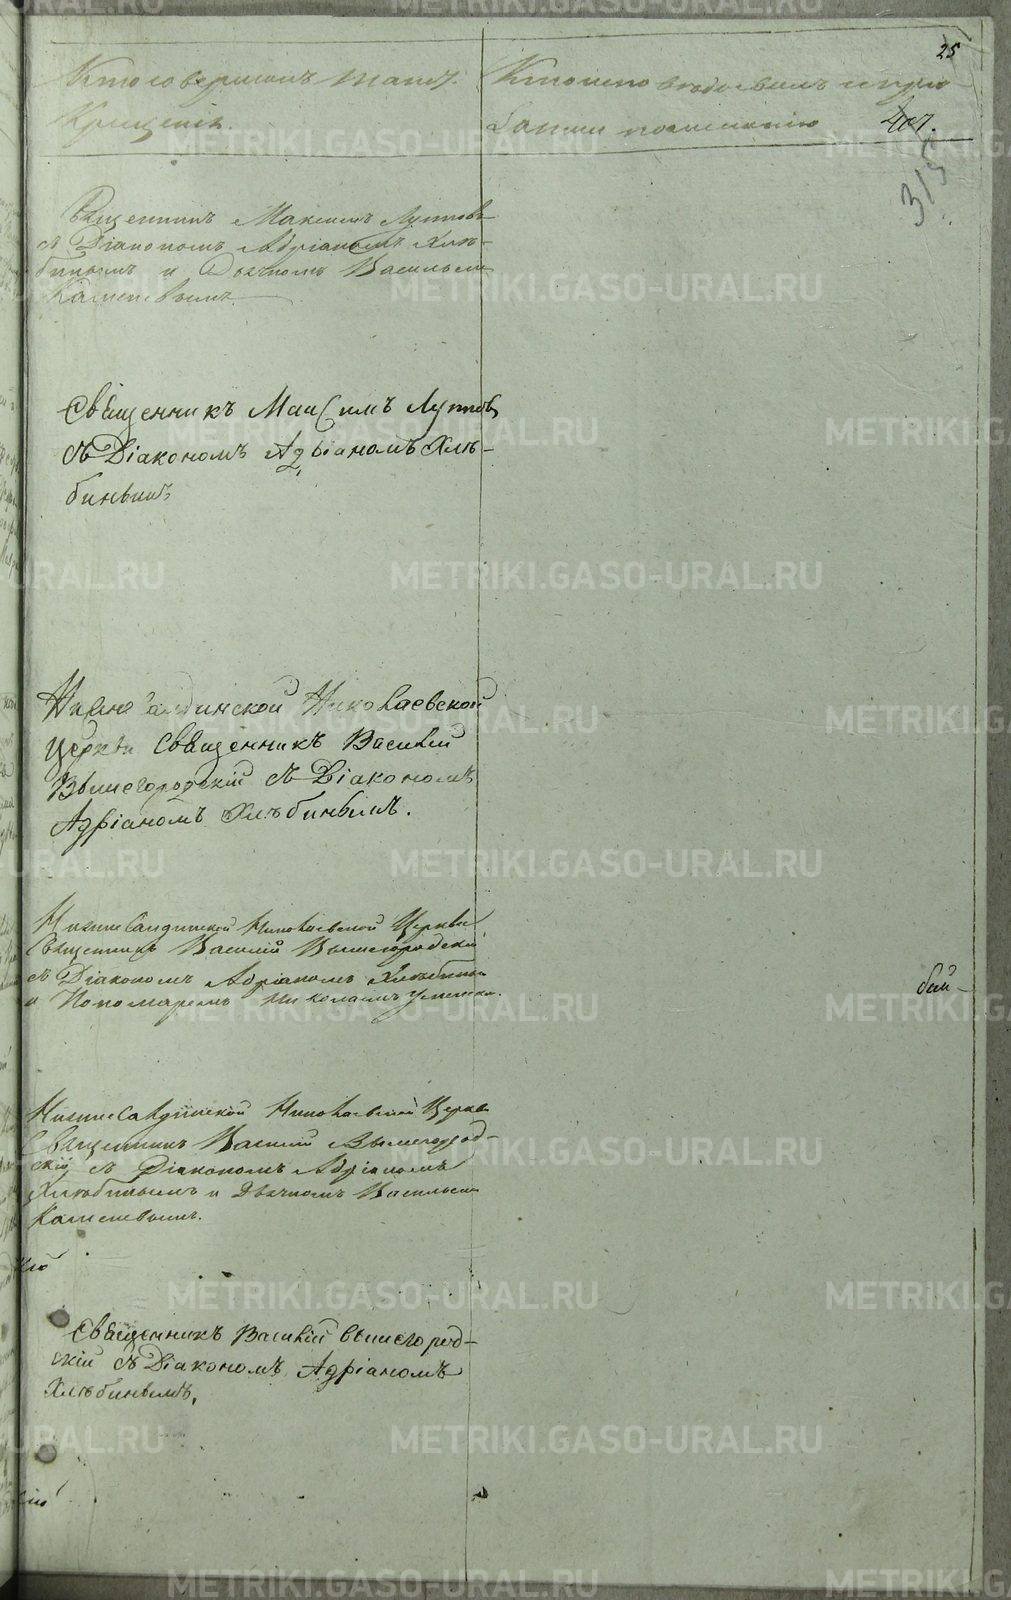 25
Кто совершилъ таин.
Крещенія.
407.
315
Священникъ Максимъ Луппов
съ Діакономъ Адріаномъ Хлѣ-
бинымъ и Дьячкомъ Васильем
Каменевымъ.
Священникъ Максимъ Луппов
съ Діакономъ Адріаномъ Хлѣ-
бинымъ
Нижнесалдинской Николаевской
Церкви Священникъ Василій
Вышегородскій съ Діакономъ
Адріаномъ Хлѣбинымъ.
Нижнесалдинской Николаевской Церкви
Священникъ Василій Вышегородскій
съ Діакономъ Адріаномъ Хлѣбинымъ
и Пономаремъ Николаемъ
бай-
Нижнесалдинской Николаевской Церкви
Священникъ Василій Вышегород-
скій съ Діакономъ Адріаномъ
Хлѣбинымъ и Дьячкомъ Васильем
Каменевымъ.
Священникъ Василій Вышегород-
скій съ Діакономъ Адріаномъ
Хлѣбинымъ,
METRIKI.GASO-URAL.RU